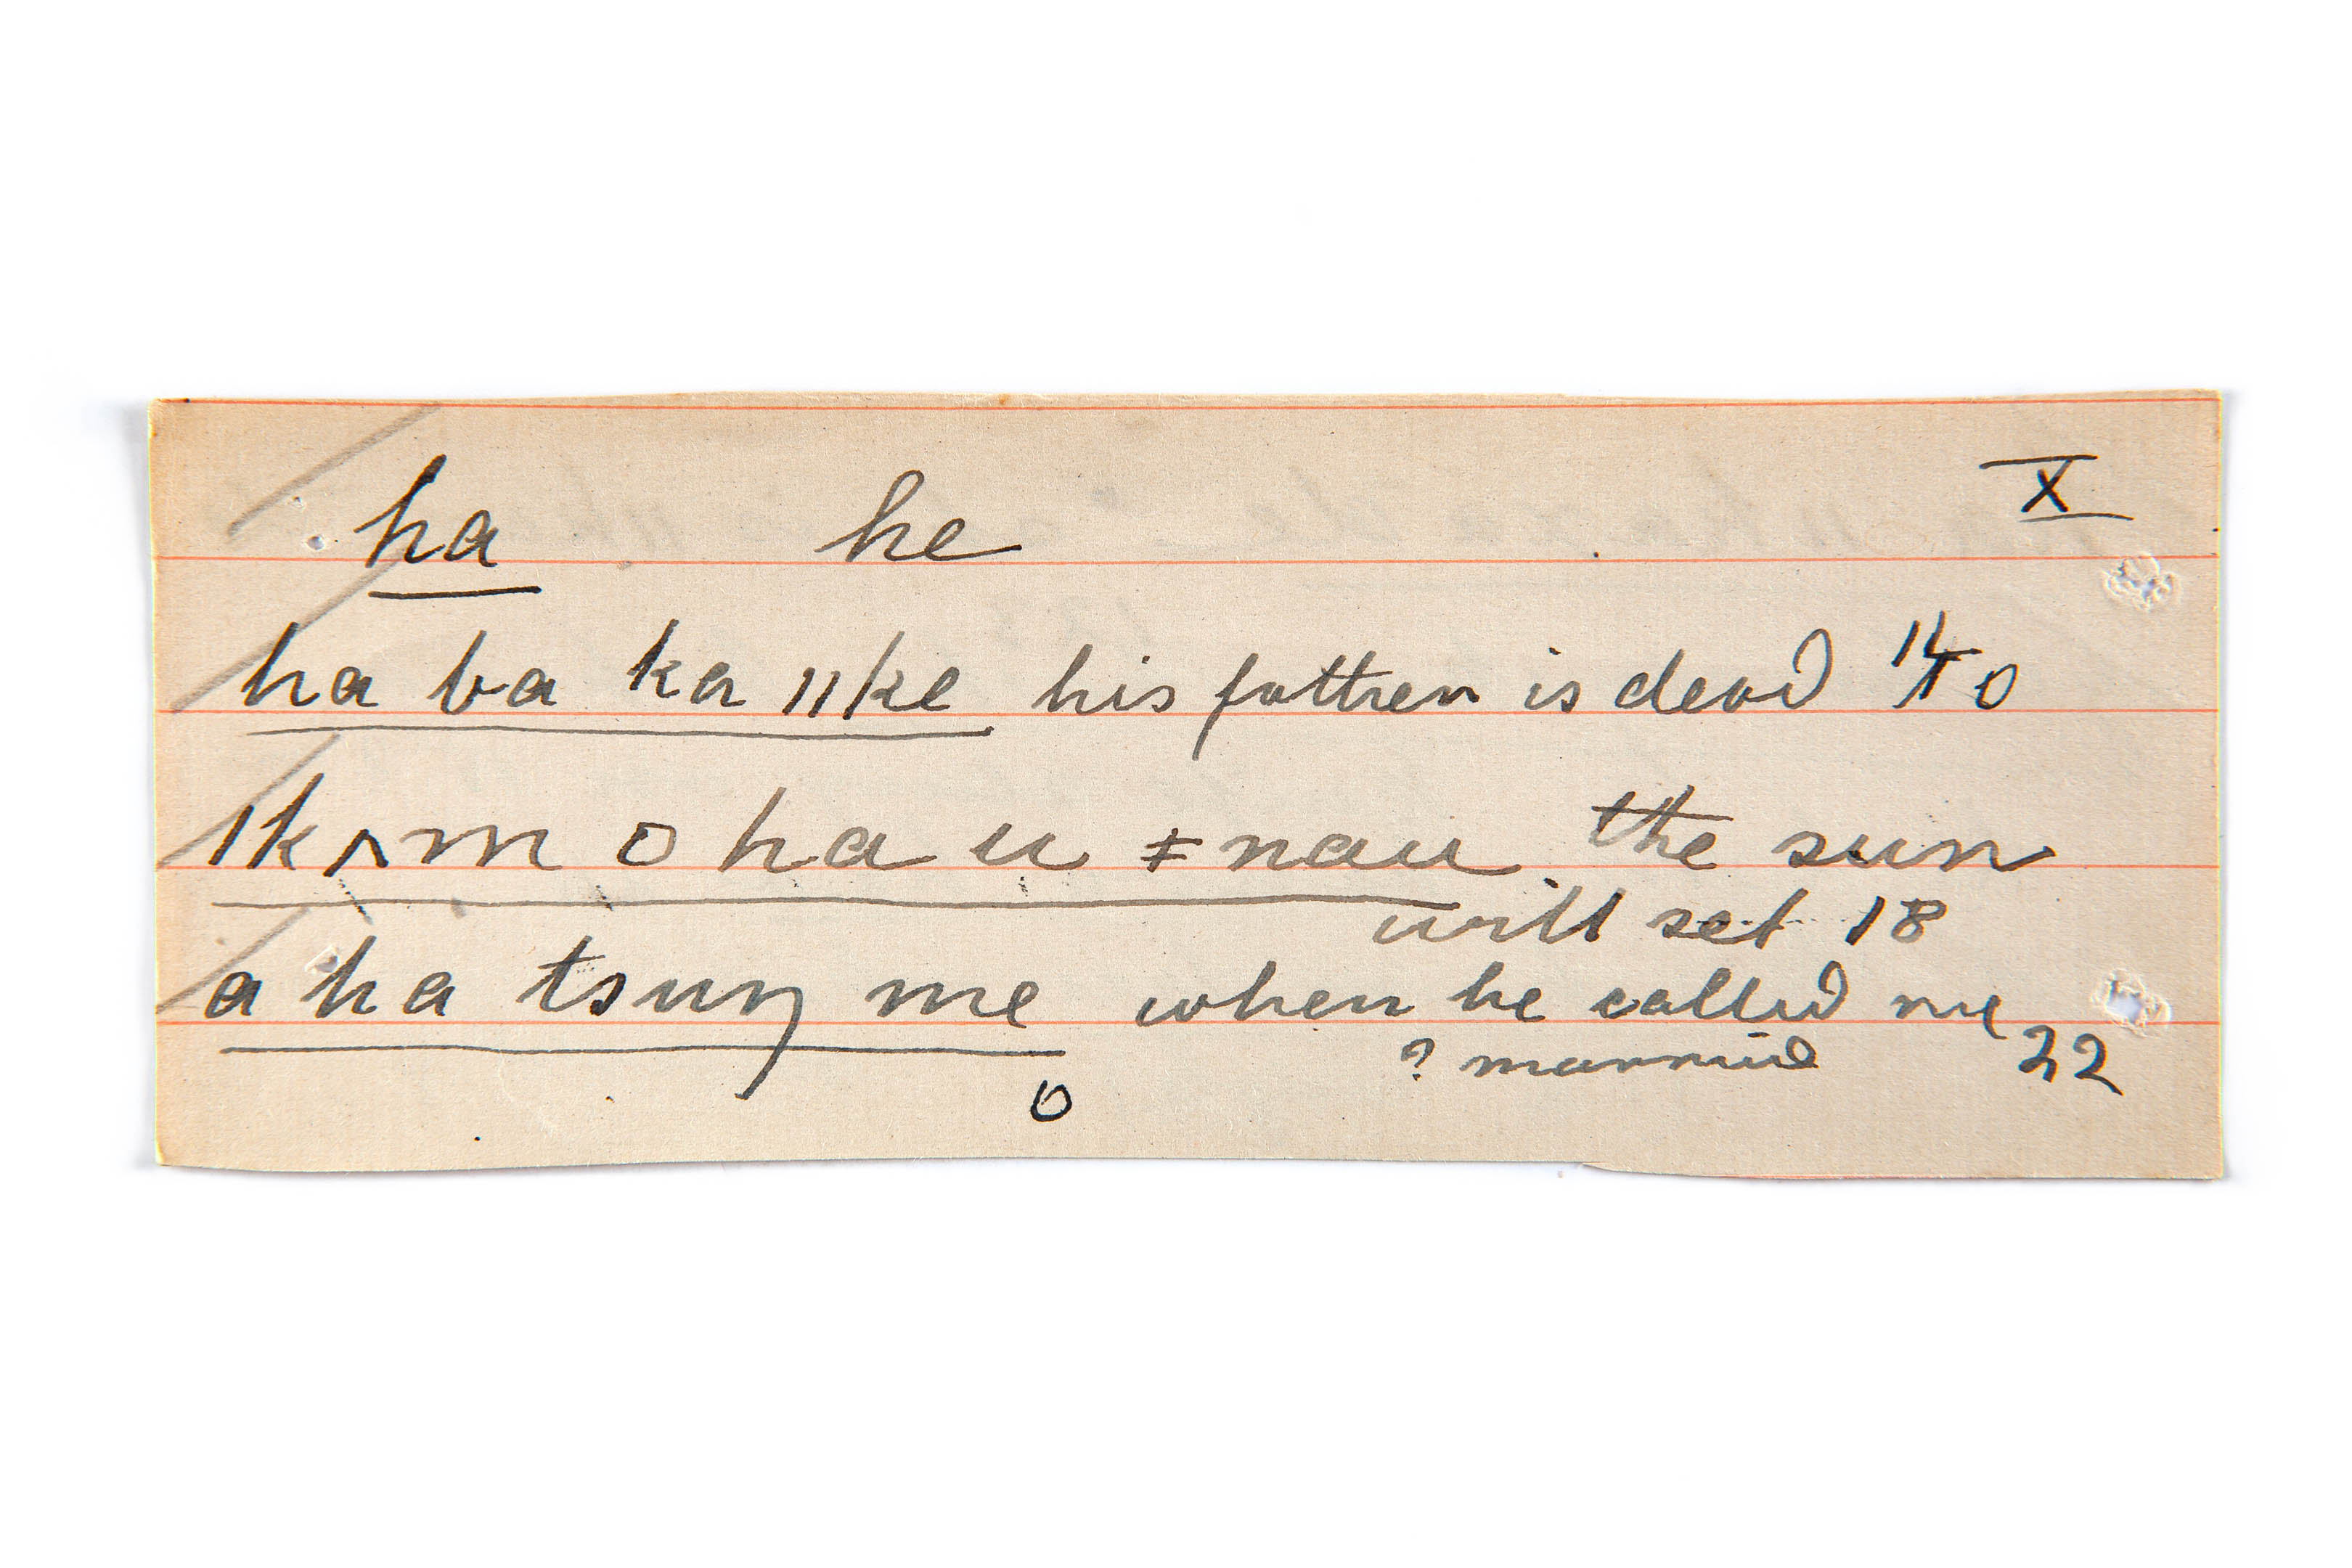 ha he X
ha ba ka ǁke his father is dead
ǀkʌm o ha u ǂnau the sun
will set 18
a ha tsuŋ me when he called me
? married 22
o